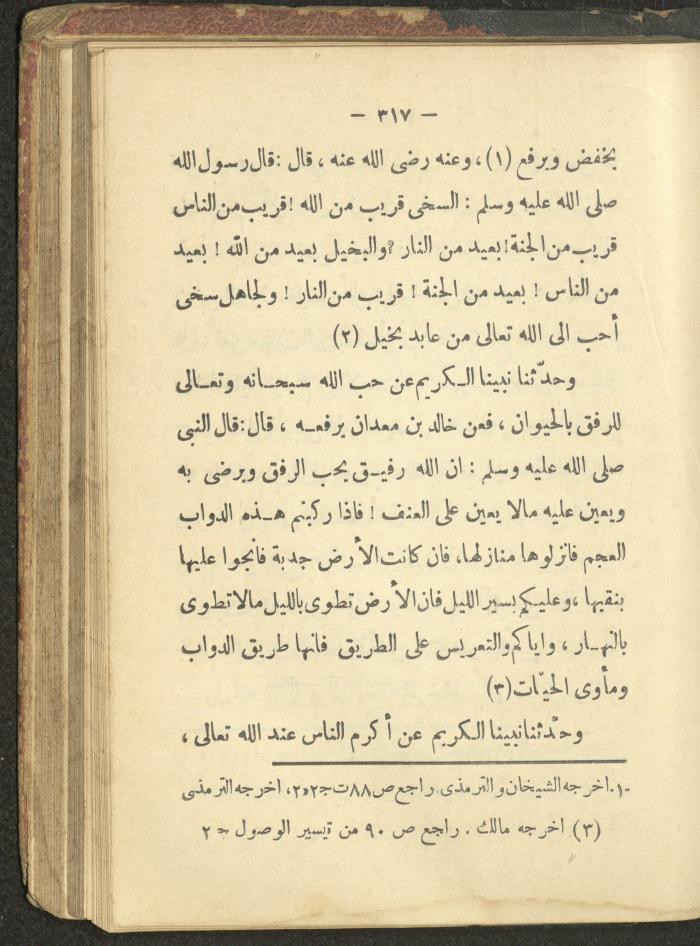 — ٣١٧ —
يخفض ويرفع (١) ، وعنه رضى الله عنه ، قال :قال رسول الله
صلى الله عليه وسلم : السخى قريب من الله !قريب من الناس
قريب من الجنة !بعيد من النار ?والبخيل بعيد من الله ! بعيد
من الناس ! بعيد من الجنة ! قريب من النار ! ولجاهل سخى
أحب الى الله تعالى من عابد بخيل (٢)
وحدّثنا نبينا الـكريم عن حب الله سبحـانه وتعـالى
للرفق بالحيوان ، فعن خالد بن معدان يرفعـه ، قال:قال النبى
صلى الله عليه وسلم : ان الله رفيـق يحب الرفق ويرضى به
ويعين عليه مالا يعين على العنف ! فاذا ركبتم هـذه الدواب
العجم فانزلوها منازلها، فان كانت الأرض جدبة فانجوا عليها
بنقيها ،وعليـكم بسير الليل فان الأرض تطوى بالليل مالا تطوى
بالنهـار ، واياكم والتعريس على الطريق فانها طريق الدواب
ومأوى الحيّات (٣)
وحدّثنا نبينا الـكريم عن أكرم الناس عند الله تعالى ،
-١- اخرجه الشيخان والترمذى. راجع ص ٨٨ ت ج ٢ و٢، اخرجه الترمذى
(٣) اخرجه مالك . راجع ص ٩٠ من تيسير الوصول ج ٢